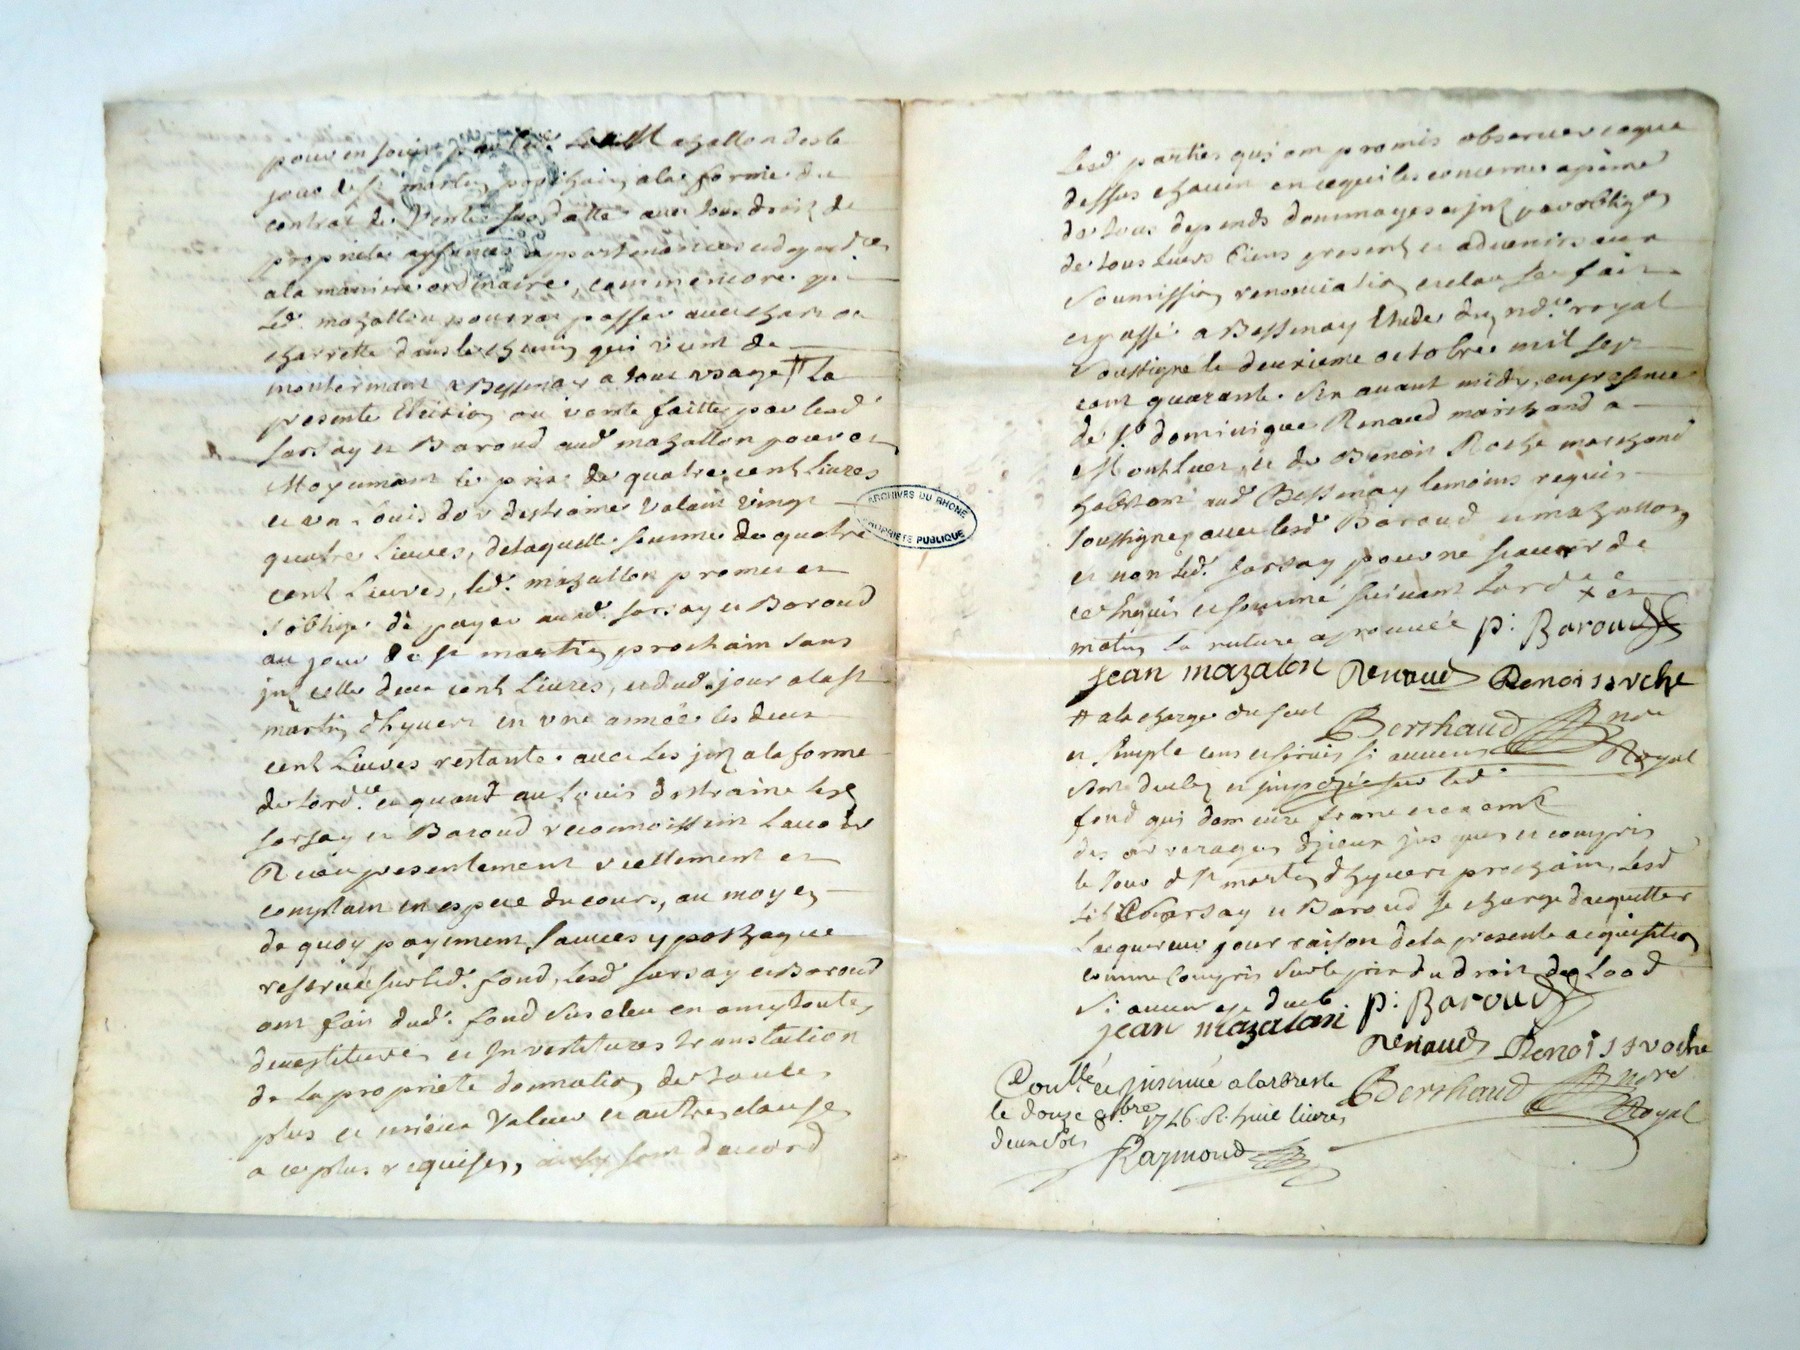 pour en jouir par led. Mazallon des le
jour de st martin prochain, a la forme du
contrat de Vente sus datté avec tous droit de
proprieté aysances appartenances et dependces
a la maniere ordinaire, comme encore que
led. mazallon pourra passer avec chars ou
charrette dans le chemin qui vient de
montermant a Bessenay a tout usage # La
presente Election ou vente faitte par lesd
Sarsay et Baroud aud mazallon pour et
Moyennant le prix de quatre cent livres
et un Louis d'or destraine valant vingt
quatre Livres, de laquelle somme de quatre
cent Livres, led. mazallon promet et
s'oblige de payer aud. Sarsay et Baroud
au jour de st martin prochain sans
jnt celle deux cent Livres, et dud. jour a la st
martin dhyvert en une année les deux
cent Livres restante avec les jnt a la forme
de lordce et quant au Louis destraine lesd
Sarsay et Baroud reconnoissent Lavoir
Receu presentement reellement et
comptant en espece du cours, au moyen
de quoy payement, sauf les ypothaque
reservée sur led. fond, lesd Sarsay et Baroud
ont fait dud. fond sus eleu en amy toutes
devestitures et Investitures translation
de la proprieté donnation de toutes
plus et mieux Valeur et autres clauses
a ce plus requises, ainsy sont d'accord
Lesd parties qui ont promis observer ce que
dessus chacun en ce qui les concerne a peine
de tous depends dommages et jnt par oblign
de tous Leurs Biens present et advenirs aux
Soumission renonciation et clause fait
et passé a Bessenay Etude du ndre royal
Soussigné le deuxieme octobre mil sept
cent quarante six avant midy, en presence
de sr dominique Renaud marchand a
Montluet, et de Benoit Roche marchand
habitant aud Bessenay temoins requis
soussignes avec lesd Baroud et mazallon
et non led. Sarsay pour ne scavoir de
ce Enquis et sommé suivant Lord x et
motus la rature aprouvée p: Baroud
jean mazalon Renaud Benoist roche
# a la charge du seul
Berthaud ndre
Royal
et simple cens et servis si aucuns
sont deubs et jmposée sur led
fond qui demeure franc et exempt
des arrerages d'jceux jusques et compris
le jour d st martin dhyvert prochain, lesd
Sarsay et Baroud se charge dacquitter
Lacquereur pour raison de la presente acquisition
comme compris sur le prix du droit de Laod
si aucun est deub p: Baroud
jean mazalon
Renaud Benoist roche
Berthaud ndre
Royal
Conllé et jnsinué a larbresle
le douze 8bre 1746 R. huit livres
deux sols
Raymond
ARCHIVES DU RHONE
PROPRIETE PUBLIQUE